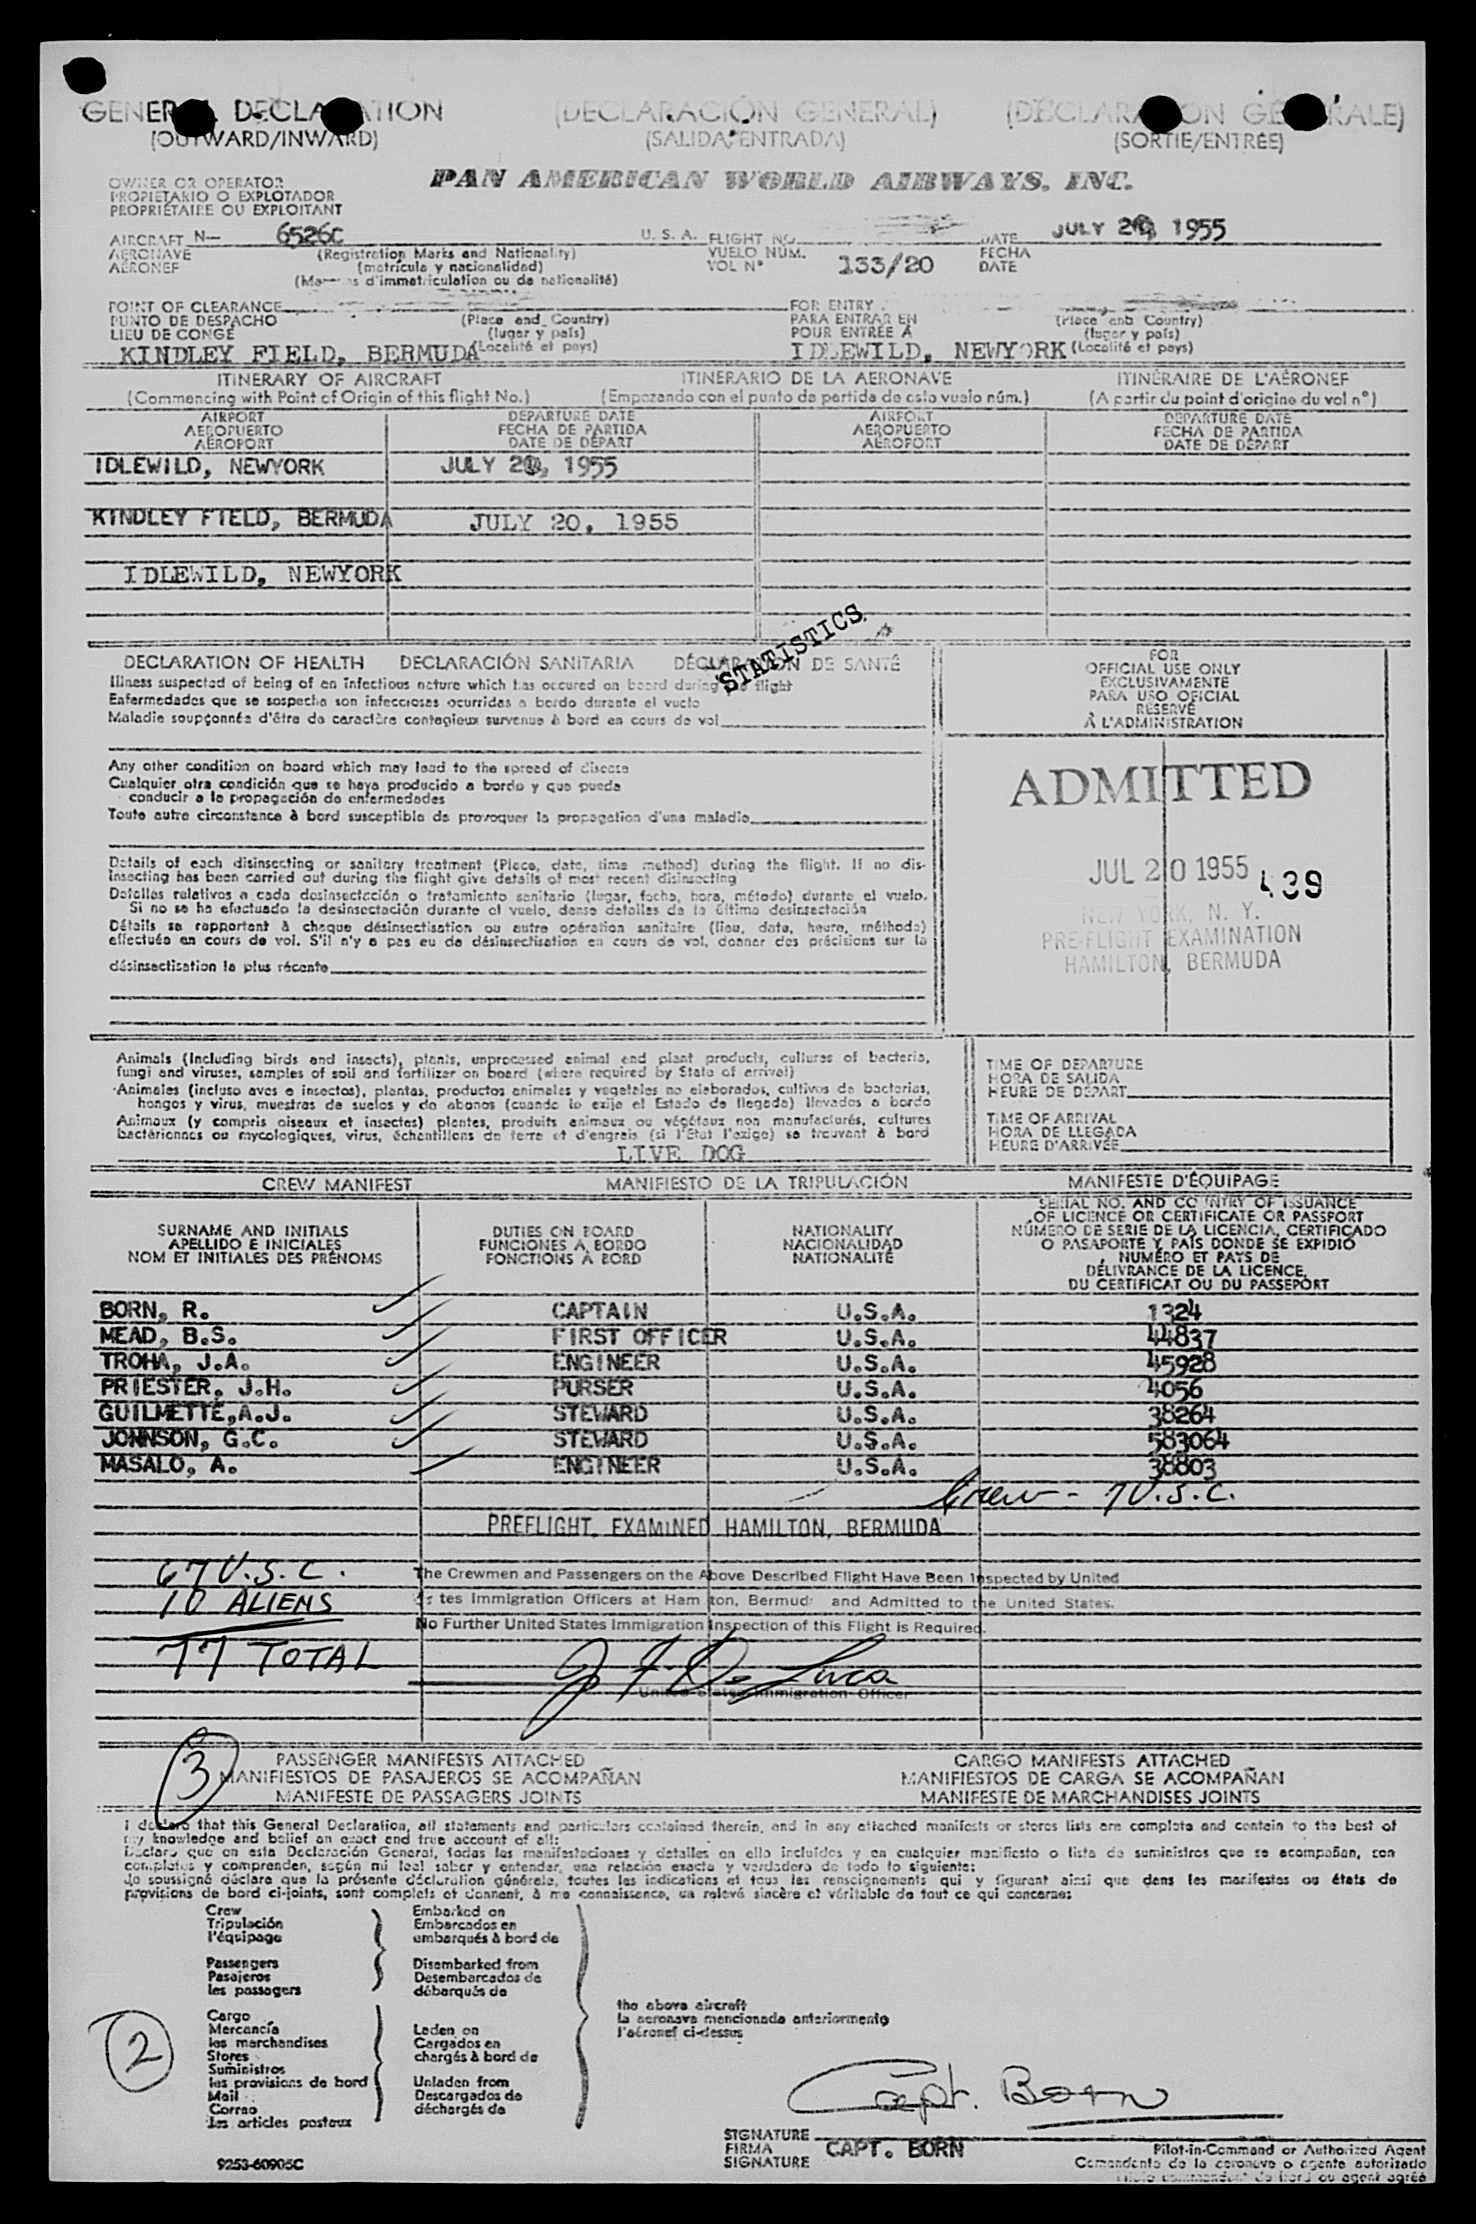 GENERAL DECLARATION (DECLARACIÓN GENERAL) (DÉCLARATION GÉNÉRALE)
(OUTWARD/INWARD) (SALIDA/ENTRADA) (SORTIE/ENTRÉE)
OWNER OR OPERATOR PAN AMERICAN WORLD AIRWAYS, INC.
PROPIETARIO O EXPLOTADOR
PROPRIÉTAIRE OU EXPLOITANT
AIRCRAFT N— 6526C U. S. A. FLIGHT NO. DATE JULY 20, 1955
AERONAVE (Registration Marks and Nationality) VUELO NÚM. 133/20 FECHA
AÉRONEF (matrícula y nacionalidad) VOL Nº DATE
(Marques d'immatriculation ou de nationalité)
POINT OF CLEARANCE FOR ENTRY
PUNTO DE DESPACHO (Place and Country) PARA ENTRAR EN (Place and Country)
LIEU DE CONGÉ (lugar y país) POUR ENTRÉE A (lugar y país)
KINDLEY FIELD, BERMUDA (Localité et pays) IDLEWILD, NEWYORK (Localité et pays)
ITINERARY OF AIRCRAFT ITINERARIO DE LA AERONAVE ITINÉRAIRE DE L'AÉRONEF
(Commencing with Point of Origin of this flight No.) (Empezando con el punto de partida de este vuelo núm.) (A partir du point d'origine du vol nº)
AIRPORT DEPARTURE DATE AIRPORT DEPARTURE DATE
AEROPUERTO FECHA DE PARTIDA AEROPUERTO FECHA DE PARTIDA
AÉROPORT DATE DE DÉPART AÉROPORT DATE DE DÉPART
IDLEWILD, NEWYORK JULY 20, 1955
KINDLEY FIELD, BERMUDA JULY 20, 1955
IDLEWILD, NEWYORK
STATISTICS
DECLARATION OF HEALTH DECLARACIÓN SANITARIA DÉCLARATION DE SANTÉ
Illness suspected of being of an infectious nature which has occured on board during the flight
Enfermedades que se sospecha son infecciosas ocurridas a bordo durante el vuelo
Maladie soupçonnée d'être de caractère contagieux survenue à bord en cours de vol
FOR
OFFICIAL USE ONLY
EXCLUSIVAMENTE
PARA USO OFICIAL
RÉSERVÉ
À L'ADMINISTRATION
Any other condition on board which may lead to the spread of disease
Cualquier otra condición que se haya producido a bordo y que pueda
conducir a la propagación de enfermedades
Toute autre circonstance à bord susceptible de provoquer la propagation d'une maladie
ADMITTED
JUL 20 1955 439
NEW YORK, N. Y.
PRE-FLIGHT EXAMINATION
HAMILTON, BERMUDA
Details of each disinsecting or sanitary treatment (Place, date, time method) during the flight. If no dis-
insecting has been carried out during the flight give details of most recent disinsecting
Detalles relativos a cada desinsectación o tratamiento sanitario (lugar, fecha, hora, método) durante el vuelo.
Si no se ha efectuado la desinsectación durante el vuelo, dense detalles de la última desinsectación
Détails se rapportant à chaque désinsectisation ou autre opération sanitaire (lieu, date, heure, méthode)
effectuée en cours de vol. S'il n'y a pas eu de désinsectisation en cours de vol, donner des précisions sur la
désinsectisation la plus récente
Animals (including birds and insects), plants, unprocessed animal and plant products, cultures of bacteria,
fungi and viruses, samples of soil and fertilizer on board (where required by State of arrival)
Animales (incluso aves e insectos), plantas, productos animales y vegetales no elaborados, cultivos de bacterias,
hongos y virus, muestras de suelos y de abonos (cuando lo exija el Estado de llegada) llevados a bordo
Animaux (y compris oiseaux et insectes) plantes, produits animaux ou végétaux non manufacturés, cultures
bactériennes ou mycologiques, virus, échantillons de terre et d'engrais (si l'État l'exige) se trouvant à bord
LIVE DOG
TIME OF DEPARTURE
HORA DE SALIDA
HEURE DE DÉPART
TIME OF ARRIVAL
HORA DE LLEGADA
HEURE D'ARRIVÉE
CREW MANIFEST MANIFIESTO DE LA TRIPULACIÓN MANIFESTE D'ÉQUIPAGE
SURNAME AND INITIALS
APELLIDO E INICIALES
NOM ET INITIALES DES PRÉNOMS
DUTIES ON BOARD
FUNCIONES A BORDO
FONCTIONS A BORD
NATIONALITY
NACIONALIDAD
NATIONALITÉ
SERIAL NO. AND COUNTRY OF ISSUANCE
OF LICENCE OR CERTIFICATE OR PASSPORT
NÚMERO DE SERIE DE LA LICENCIA, CERTIFICADO
O PASAPORTE Y PAÍS DONDE SE EXPIDIÓ
NUMÉRO ET PAYS DE
DÉLIVRANCE DE LA LICENCE,
DU CERTIFICAT OU DU PASSEPORT
BORN, R. CAPTAIN U.S.A. 1324
MEAD, B.S. FIRST OFFICER U.S.A. 44837
TROHA, J.A. ENGINEER U.S.A. 45928
PRIESTER, J.H. PURSER U.S.A. 4056
GUILMETTE, A.J. STEWARD U.S.A. 38264
JOHNSON, G.C. STEWARD U.S.A. 583064
MASALO, A. ENGINEER U.S.A. 38803
Crew - 7 U.S.C.
PREFLIGHT EXAMINED HAMILTON, BERMUDA
67 U.S.C.
10 ALIENS
77 TOTAL
The Crewmen and Passengers on the Above Described Flight Have Been Inspected by United
States Immigration Officers at Hamilton, Bermuda and Admitted to the United States.
No Further United States Immigration Inspection of this Flight is Required.
J F De Luca
United States Immigration Officer
3
PASSENGER MANIFESTS ATTACHED CARGO MANIFESTS ATTACHED
MANIFIESTOS DE PASAJEROS SE ACOMPAÑAN MANIFIESTOS DE CARGA SE ACOMPAÑAN
MANIFESTE DE PASSAGERS JOINTS MANIFESTE DE MARCHANDISES JOINTS
I declare that this General Declaration, all statements and particulars contained therein, and in any attached manifests or stores lists are complete and contain to the best of
my knowledge and belief an exact and true account of all:
Declaro que en esta Declaración General, todas las manifestaciones y detalles en ella incluidos y en cualquier manifiesto o lista de suministros que se acompañan, son
completos y comprenden, según mi leal saber y entender, una relación exacta y verdadera de todo lo siguiente:
Je soussigné déclare que la présente déclaration générale, toutes les indications et tous les renseignements qui y figurent ainsi que dans les manifestes ou états de
provisions de bord ci-joints, sont complets et donnent, à ma connaissance, un relevé sincère et véritable de tout ce qui concerne:
Crew Embarked on
Tripulación Embarcados en
l'équipage embarqués à bord de
Passengers Disembarked from
Pasajeros Desembarcados de
les passagers débarqués de
the above aircraft
la aeronave mencionada anteriormente
l'aéronef ci-dessus
Cargo
Mercancía Laden on
les marchandises Cargados en
Stores chargés à bord de
Suministros
les provisions de bord Unladen from
Mail Descargados de
Correo déchargés de
les articles postaux
2
Capt. Born
SIGNATURE
FIRMA CAPT. BORN Pilot-in-Command or Authorized Agent
SIGNATURE Comandante de la aeronave o agente autorizado
9253-60905C